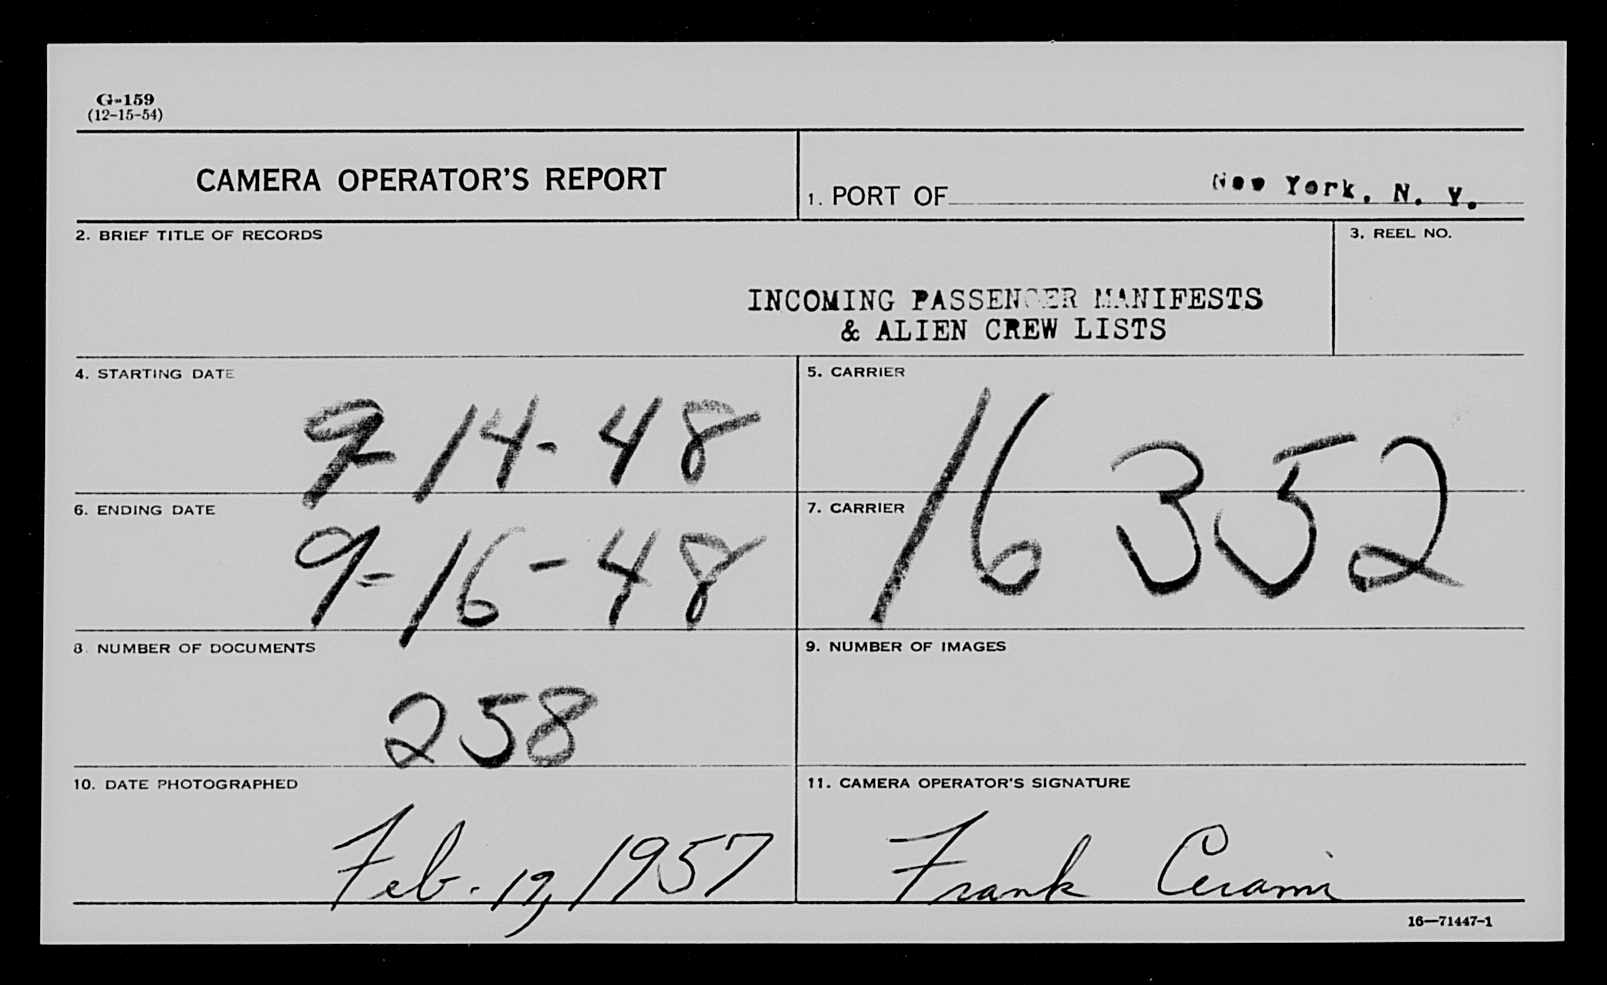 G-159
(12-15-54)
CAMERA OPERATOR'S REPORT
1. PORT OF New York, N. Y.
2. BRIEF TITLE OF RECORDS
3. REEL NO.
INCOMING PASSENGER MANIFESTS
& ALIEN CREW LISTS
4. STARTING DATE
9-14-48
5. CARRIER
16352
6. ENDING DATE
9-16-48
7. CARRIER
8. NUMBER OF DOCUMENTS
258
9. NUMBER OF IMAGES
10. DATE PHOTOGRAPHED
Feb. 19, 1957
11. CAMERA OPERATOR'S SIGNATURE
Frank Cerami
16—71447-1